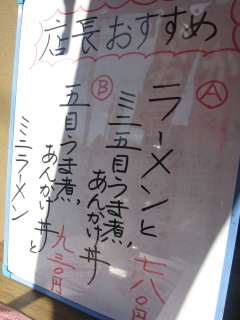 店長おすすめ
Ⓐ
ラーメンと
ミニ五目うま煮、
あんかけ丼
七八〇円
Ⓑ
五目うま煮、
あんかけ丼と
ミニラーメン
九三〇円